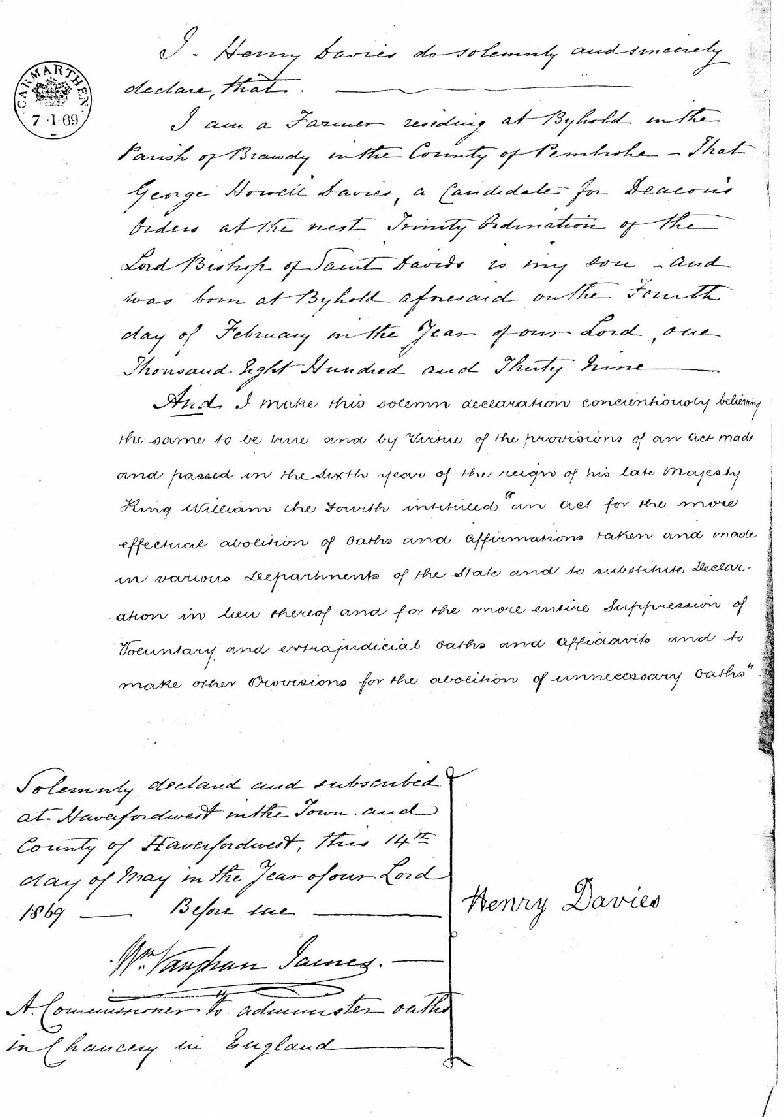 CARMARTHEN
7·1·69
I Henry Davies do solemnly and sincerely
declare, that
I am a Farmer residing at Byhold in the
Parish of Brawdy in the County of Pembroke – That
George Howell Davies, a Candidate for Deacon's
Orders at the next Trinity Ordination of the
Lord Bishop of Saint Davids is my son – and
was born at Byhold aforesaid on the Fourth
day of February in the Year of our Lord, one
Thousand Eight Hundred and Thirty Nine
And I make this solemn declaration concientiously believing
the same to be true and by Virtue of the provisions of an Act made
and passed in the Sixth year of the reign of his late Majesty
King William the Fourth intituled "an Act for the more
effectual abolition of Oaths and Affirmations taken and made
in various Departments of the State and to substitute Declar-
ation in lieu thereof and for the more entire Suppression of
Voluntary and extrajudicial Oaths and Affidavits and to
make other Provisions for the abolition of unnecessary Oaths"
Solemnly declared and subscribed
at Haverfordwest in the Town and
County of Haverfordwest, this 14th
day of May in the Year of our Lord
1869 — Before me
Wm. Vaughan James.
A Commissioner to administer oaths
in Chancery in England
Henry Davies